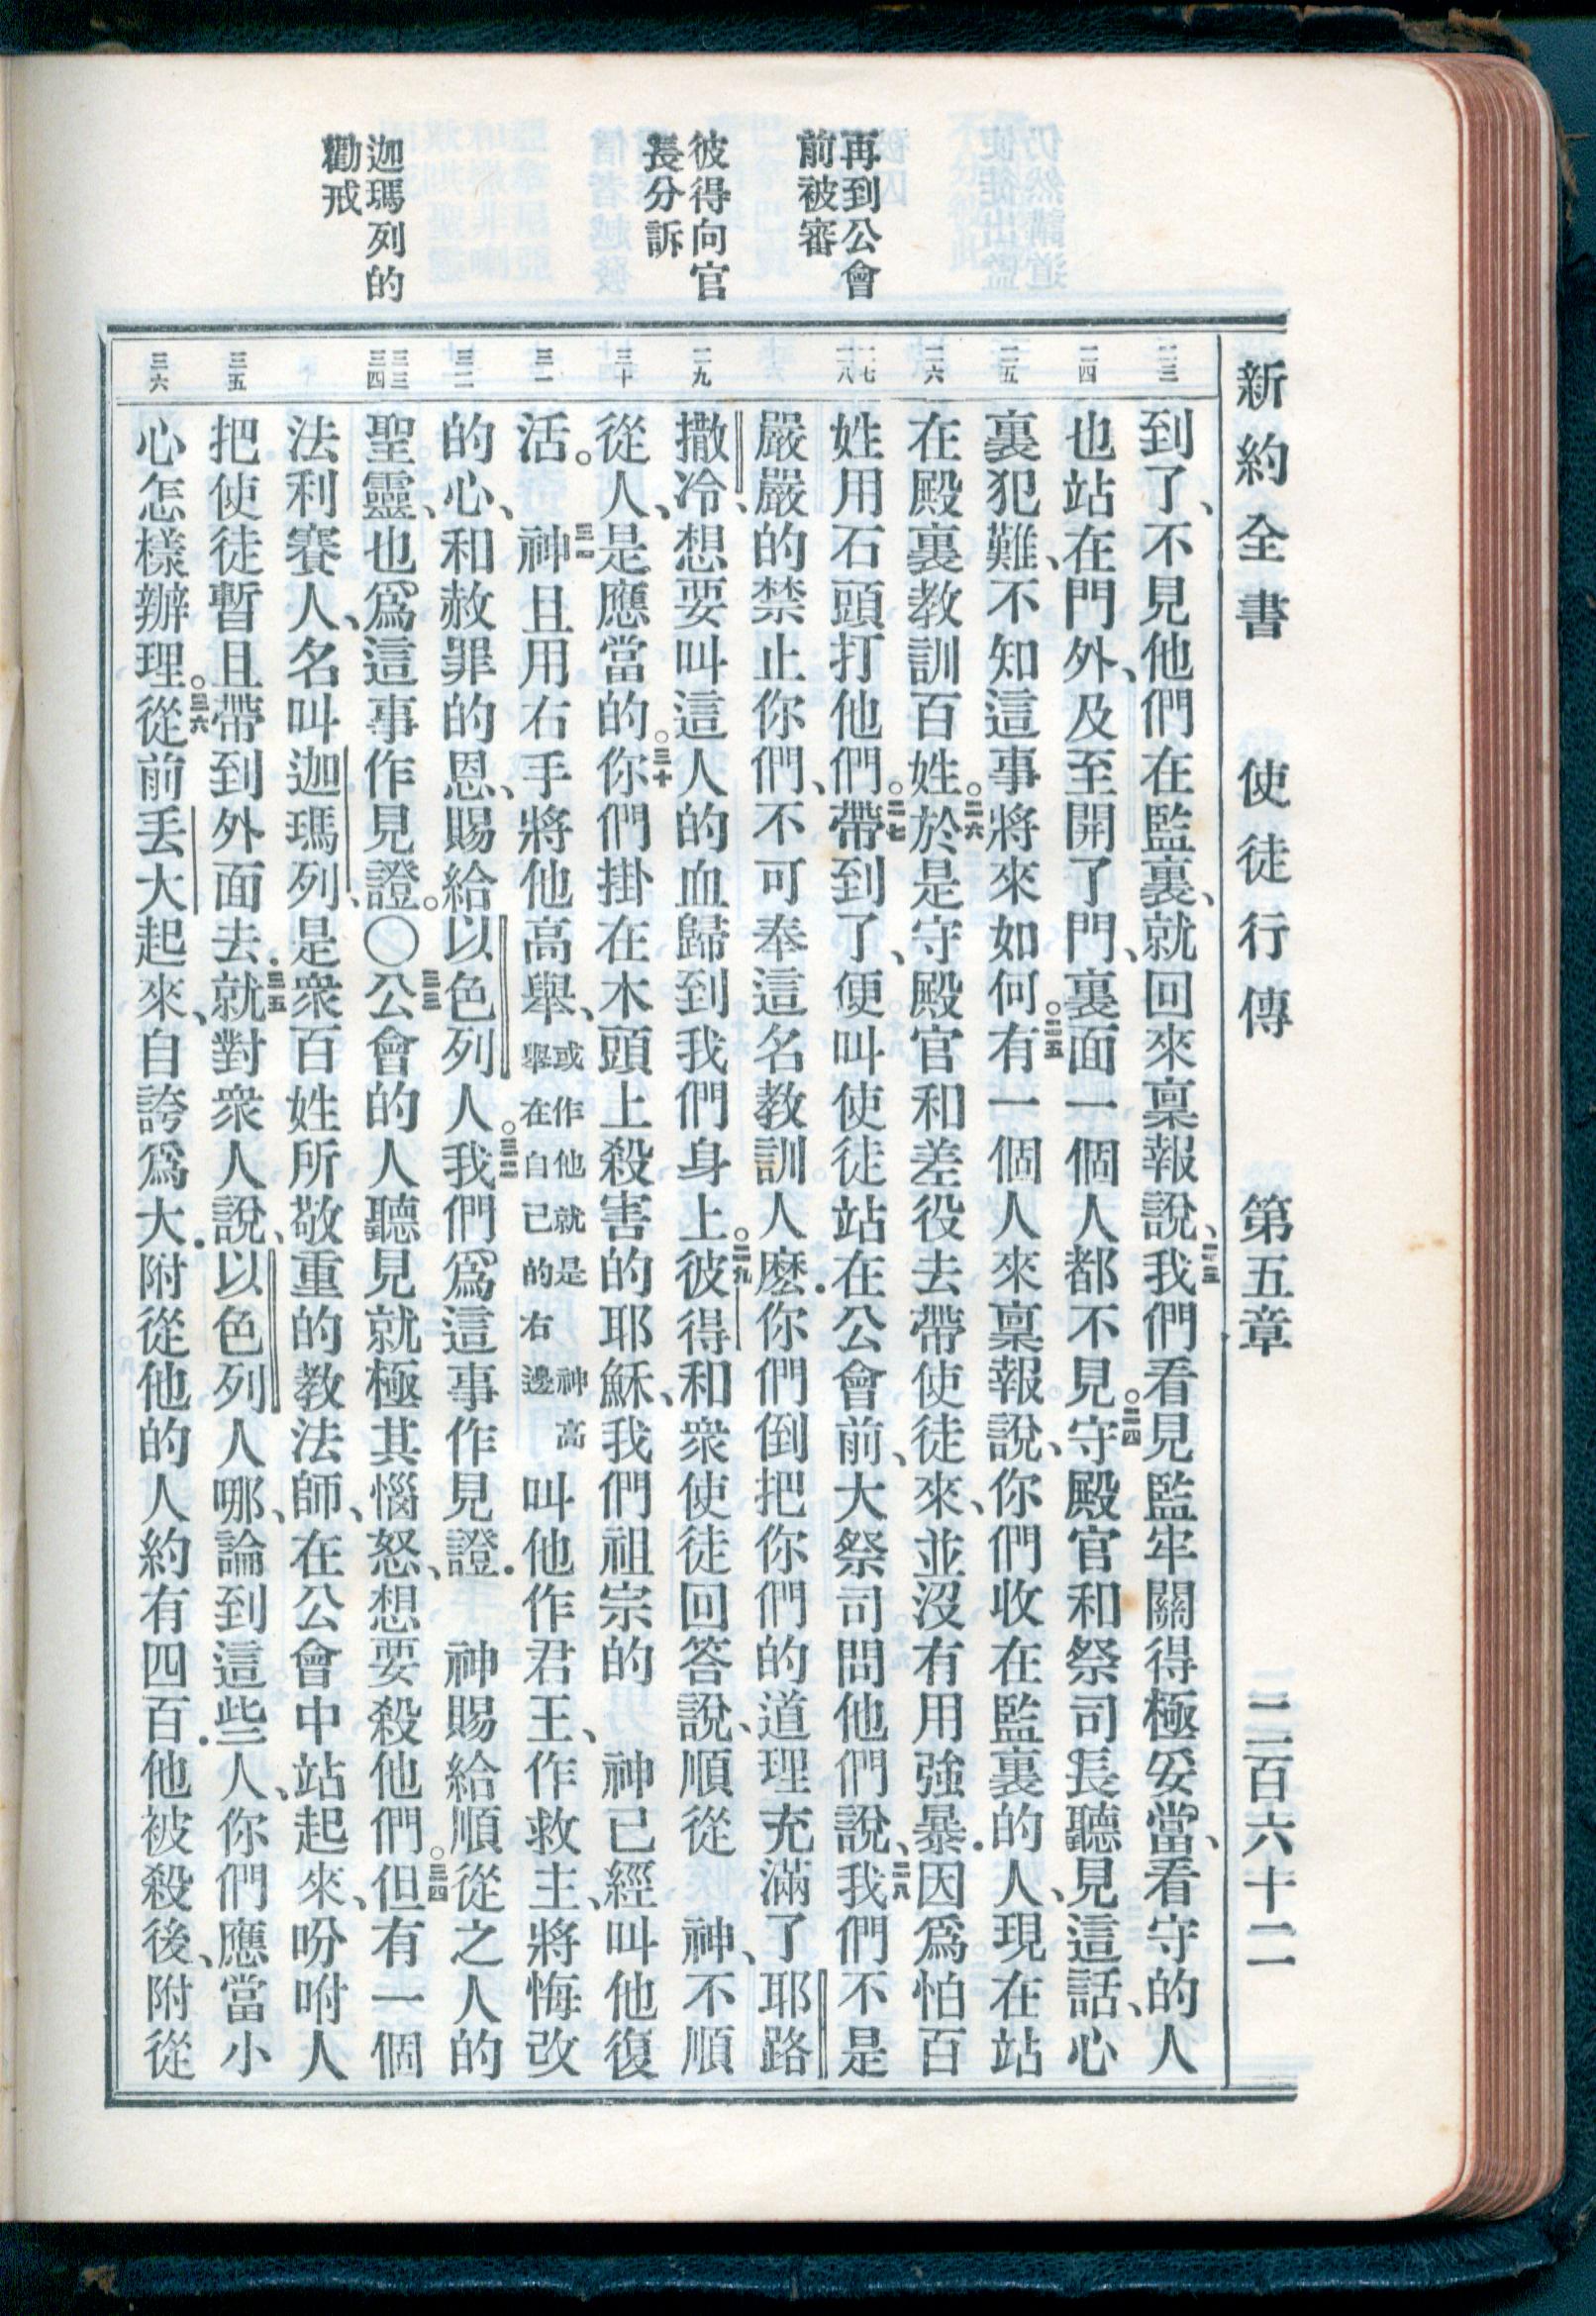 再到公會
前被審
彼得向官
長分訴
迦瑪列的
勸戒
新約全書　使徒行傳　第五章　二百六十二
二三
二四
二五
二六
二七
二八
二九
三十
三一
三二
三三
三四
三五
三六
到了、不見他們在監裏、就回來稟報說、二三我們看見監牢關得極妥當、看守的人
也站在門外、及至開了門、裏面一個人都不見。二四守殿官和祭司長聽見這話、心
裏犯難、不知這事將來如何。二五有一個人來稟報說、你們收在監裏的人、現在站
在殿裏教訓百姓。二六於是守殿官和差役去帶使徒來、並沒有用強暴．因爲怕百
姓用石頭打他們。二七帶到了、便叫使徒站在公會前、大祭司問他們說、二八我們不是
嚴嚴的禁止你們、不可奉這名教訓人麽．你們倒把你們的道理充滿了耶路
撒冷、想要叫這人的血歸到我們身上。二九彼得和衆使徒回答說、順從　神、不順
從人、是應當的。三十你們掛在木頭上殺害的耶穌、我們祖宗的　神已經叫他復
活。三一　神且用右手將他高舉、或作他就是　神高舉在自己的右邊叫他作君王、作救主、將悔改
的心、和赦罪的恩、賜給以色列人。三二我們爲這事作見證．　神賜給順從之人的
聖靈、也爲這事作見證。〇三三公會的人聽見就極其惱怒、想要殺他們。三四但有一個
法利賽人、名叫迦瑪列、是衆百姓所敬重的教法師、在公會中站起來、吩咐人
把使徒暫且帶到外面去．三五就對衆人說、以色列人哪、論到這些人、你們應當小
心怎樣辦理。三六從前丟大起來、自誇爲大．附從他的人約有四百．他被殺後、附從